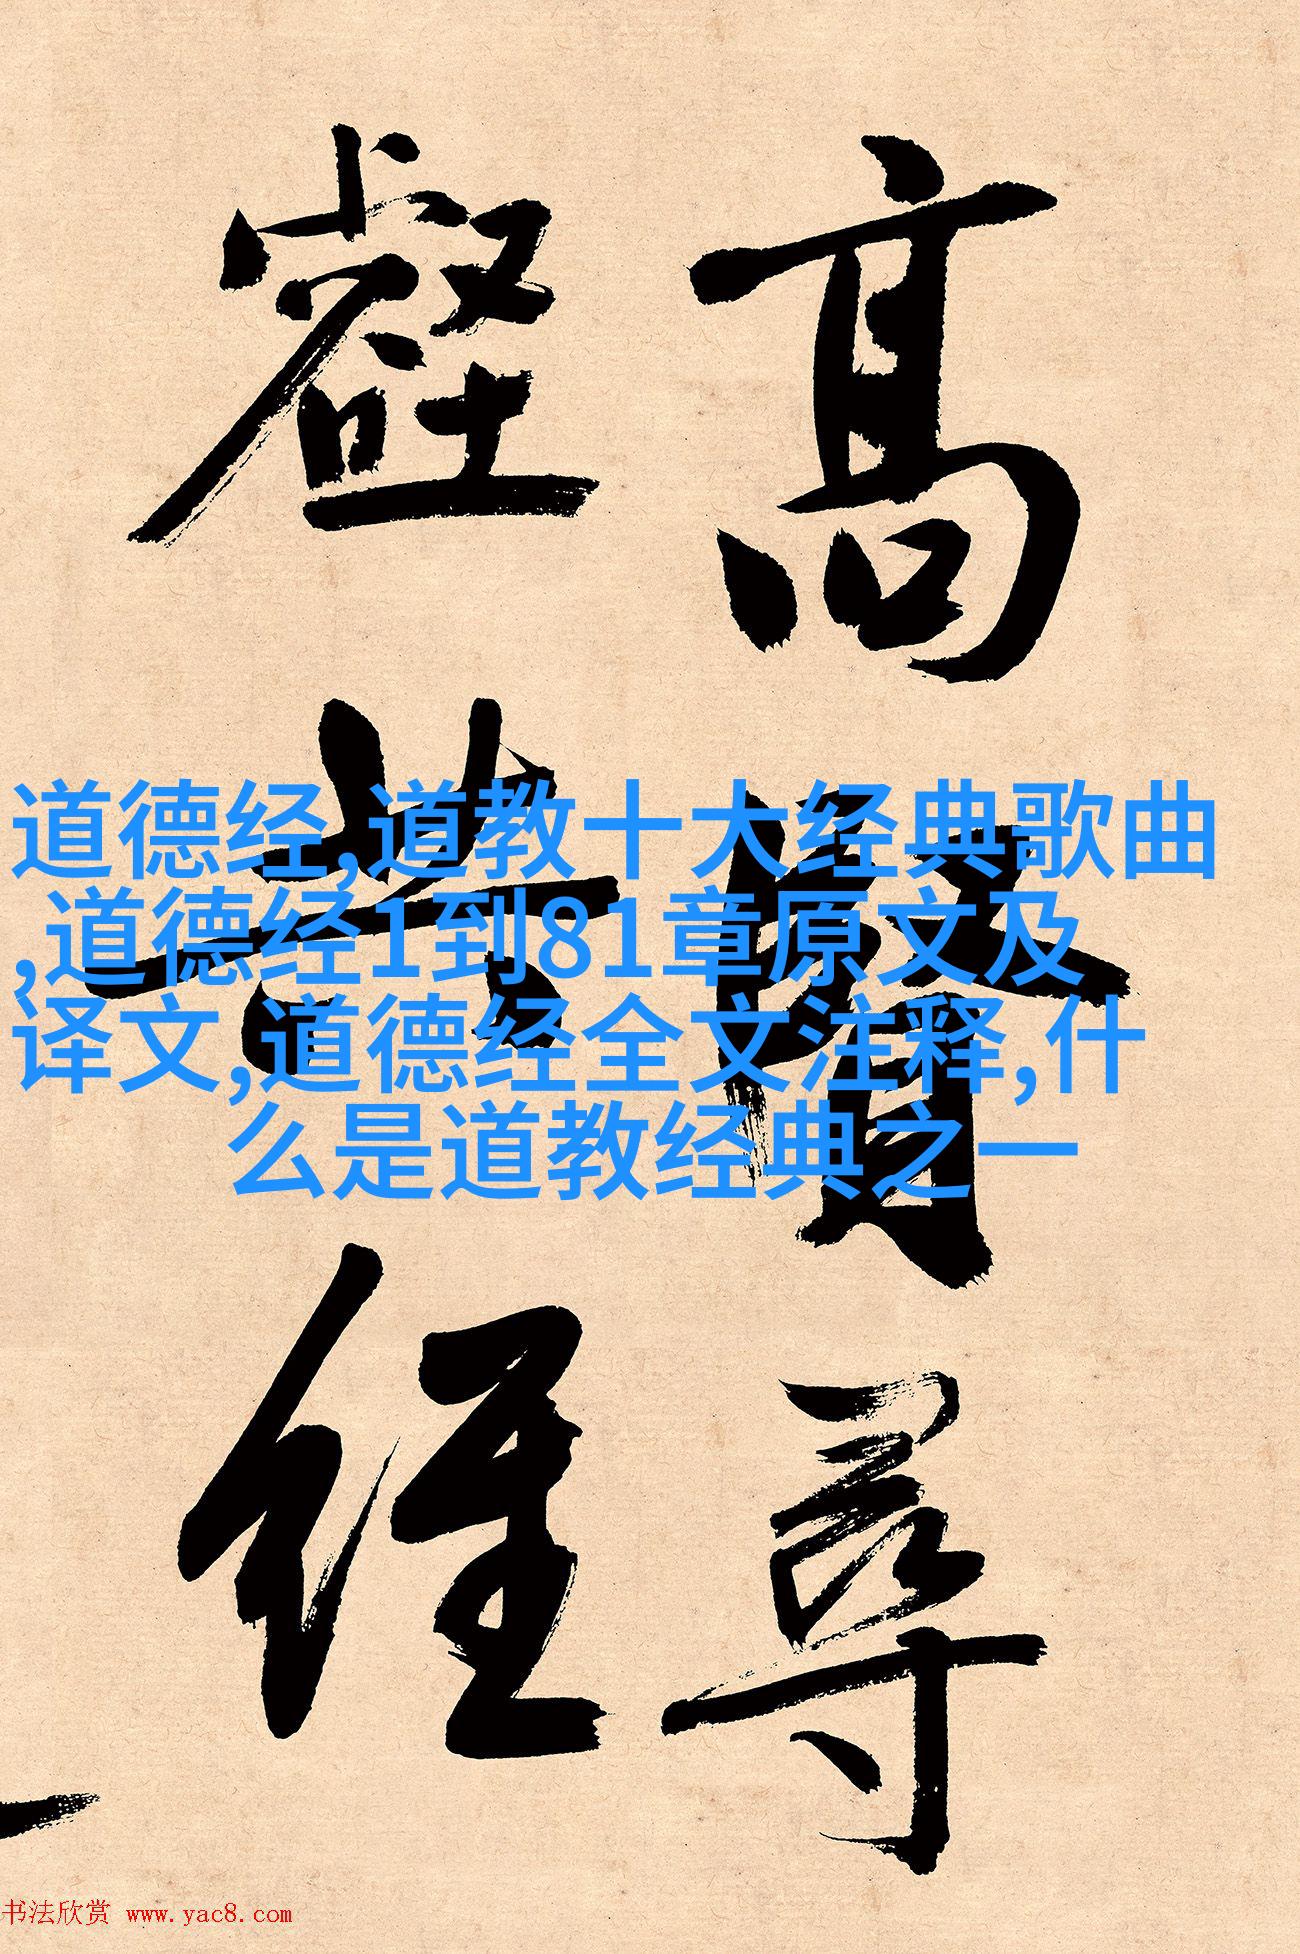 高賢尋
壑共經
道德经,道教十大经典歌曲
,道德经1到81章原文及
译文,道德经全文注释,什
么是道教经典之一
书法欣赏 www.yac8.com